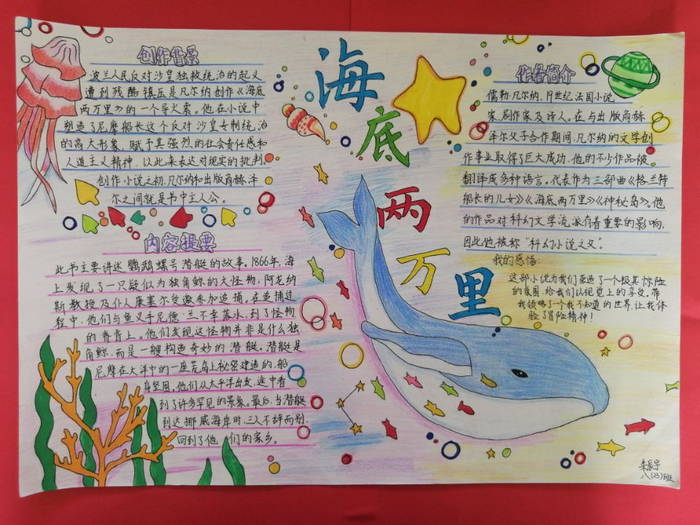 创作背景
波兰人民反对沙皇独裁统治的起义
遭到残酷镇压是凡尔纳创作《海底
两万里》的一个导火索。他在小说中
塑造了尼摩船长这个反对沙皇专制统治
的高大形象，赋予其强烈的社会责任感和
人道主义精神，以此来表达对现实的批判
创作小说之初，凡尔纳和出版商赫泽
尔之间就是书中主人公。
内容提要
此书主要讲述鹦鹉螺号潜艇的故事。1866年，海
上发现了一只疑似为独角鲸的大怪物，阿龙纳
斯教授及仆人康塞尔受邀参加追捕。在追捕过
程中，他们与鱼叉手尼德·兰不幸落水，到了怪物
的脊背上。他们发现这怪物并非是什么独
角鲸，而是一艘构造奇妙的潜艇。潜艇是
尼摩在大洋中的一座荒岛上秘密建造的，船
身坚固，他们从太平洋出发，途中看
到了许多罕见的景象。最后，当潜艇
到达挪威海岸时，三人不辞而别，
回到了他们的家乡。
海
底
两
万
里
作者简介
儒勒·凡尔纳，19世纪法国小说
家、剧作家及诗人。在与出版商赫
泽尔父子合作期间，凡尔纳的文学创
作事业取得了巨大成功，他的不少作品被
翻译成多种语言。代表作为三部曲《格兰特
船长的儿女》《海底两万里》《神秘岛》。他
的作品对科幻文学流派有着重要的影响，
因此他被称“科幻小说之父”。
我的感悟
这部小说为我们营造了一个极其惊险
的氛围，给我们以视觉上的享受，带
我领略了个我不知道的世界，让我体
验了冒险精神！
八(23)班